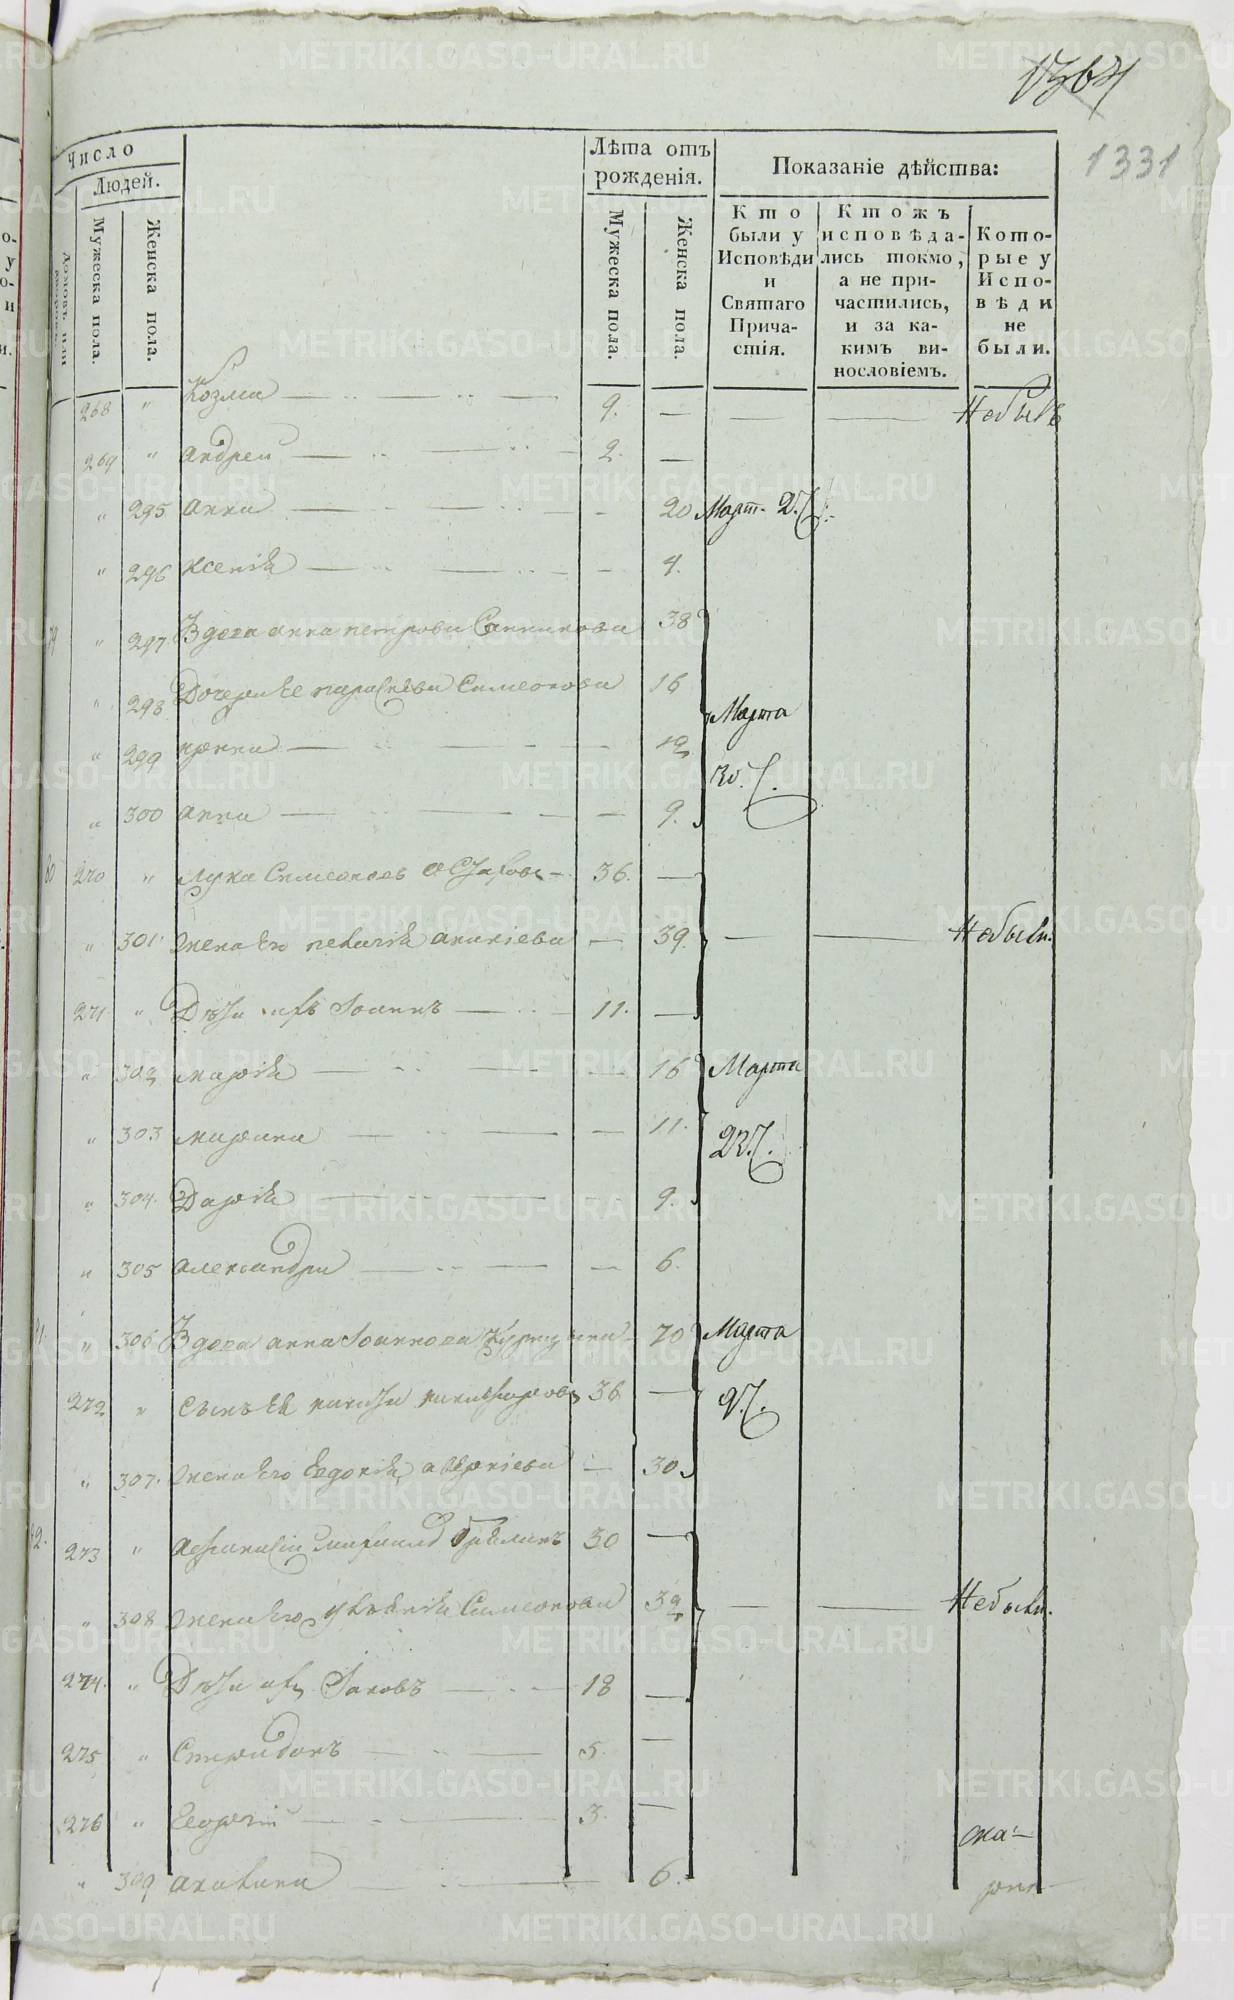 1331
Число
Людей.
Домовъ, или
Мужеска пола.
Женска пола.
Лѣта отъ
рожденія.
Мужеска пола.
Женска пола.
Показаніе дѣйства:
Кто
были у
Исповѣди
и
Святаго
Прича-
стія.
Ктожъ
исповѣда-
лись токмо,
а не при-
частились,
и за ка-
кимъ ви-
нословіемъ.
Кото-
рые у
Испо-
вѣди
не
были.
268 " Козма 9. — Небылъ
269 " Андреи 2. —
" 295 Анна — 20 Март. 2.
" 296 Ксенія — 4.
79 " 297 Вдова Анна Петрова Санникова 38
" 298 Дочери Ее Параскева Симеонова 16 Марта
" 299 Ирина — 12
" 300 Анна — 9.
80 270 " Лука Симеоновъ 36. —
" 301. Жена Его Пелагія Ананіева — 39. Небыли.
271 " Дѣти ихъ Іоаннъ 11. —
" 302 Марія — 16 Марта
" 303 Марина — 11. 22.
" 304. Дарія — 9.
" 305 Александра — 6.
81. " 306 Вдова Анна Іоаннова 70 Марта
272 " Сынъ Ея Никита Никифоровъ 36 — 2.
" 307. Жена Его Евдокія Аверкіева — 30
82. 273 " Афанасіи 30 —
" 308 Жена Его Симеонова 32 Небыли.
274. " Дѣти ихъ Іаковъ 18 —
275 " Спиридонъ 5. —
276 " Георгіи 3. —
" 309 Акилина — 6.